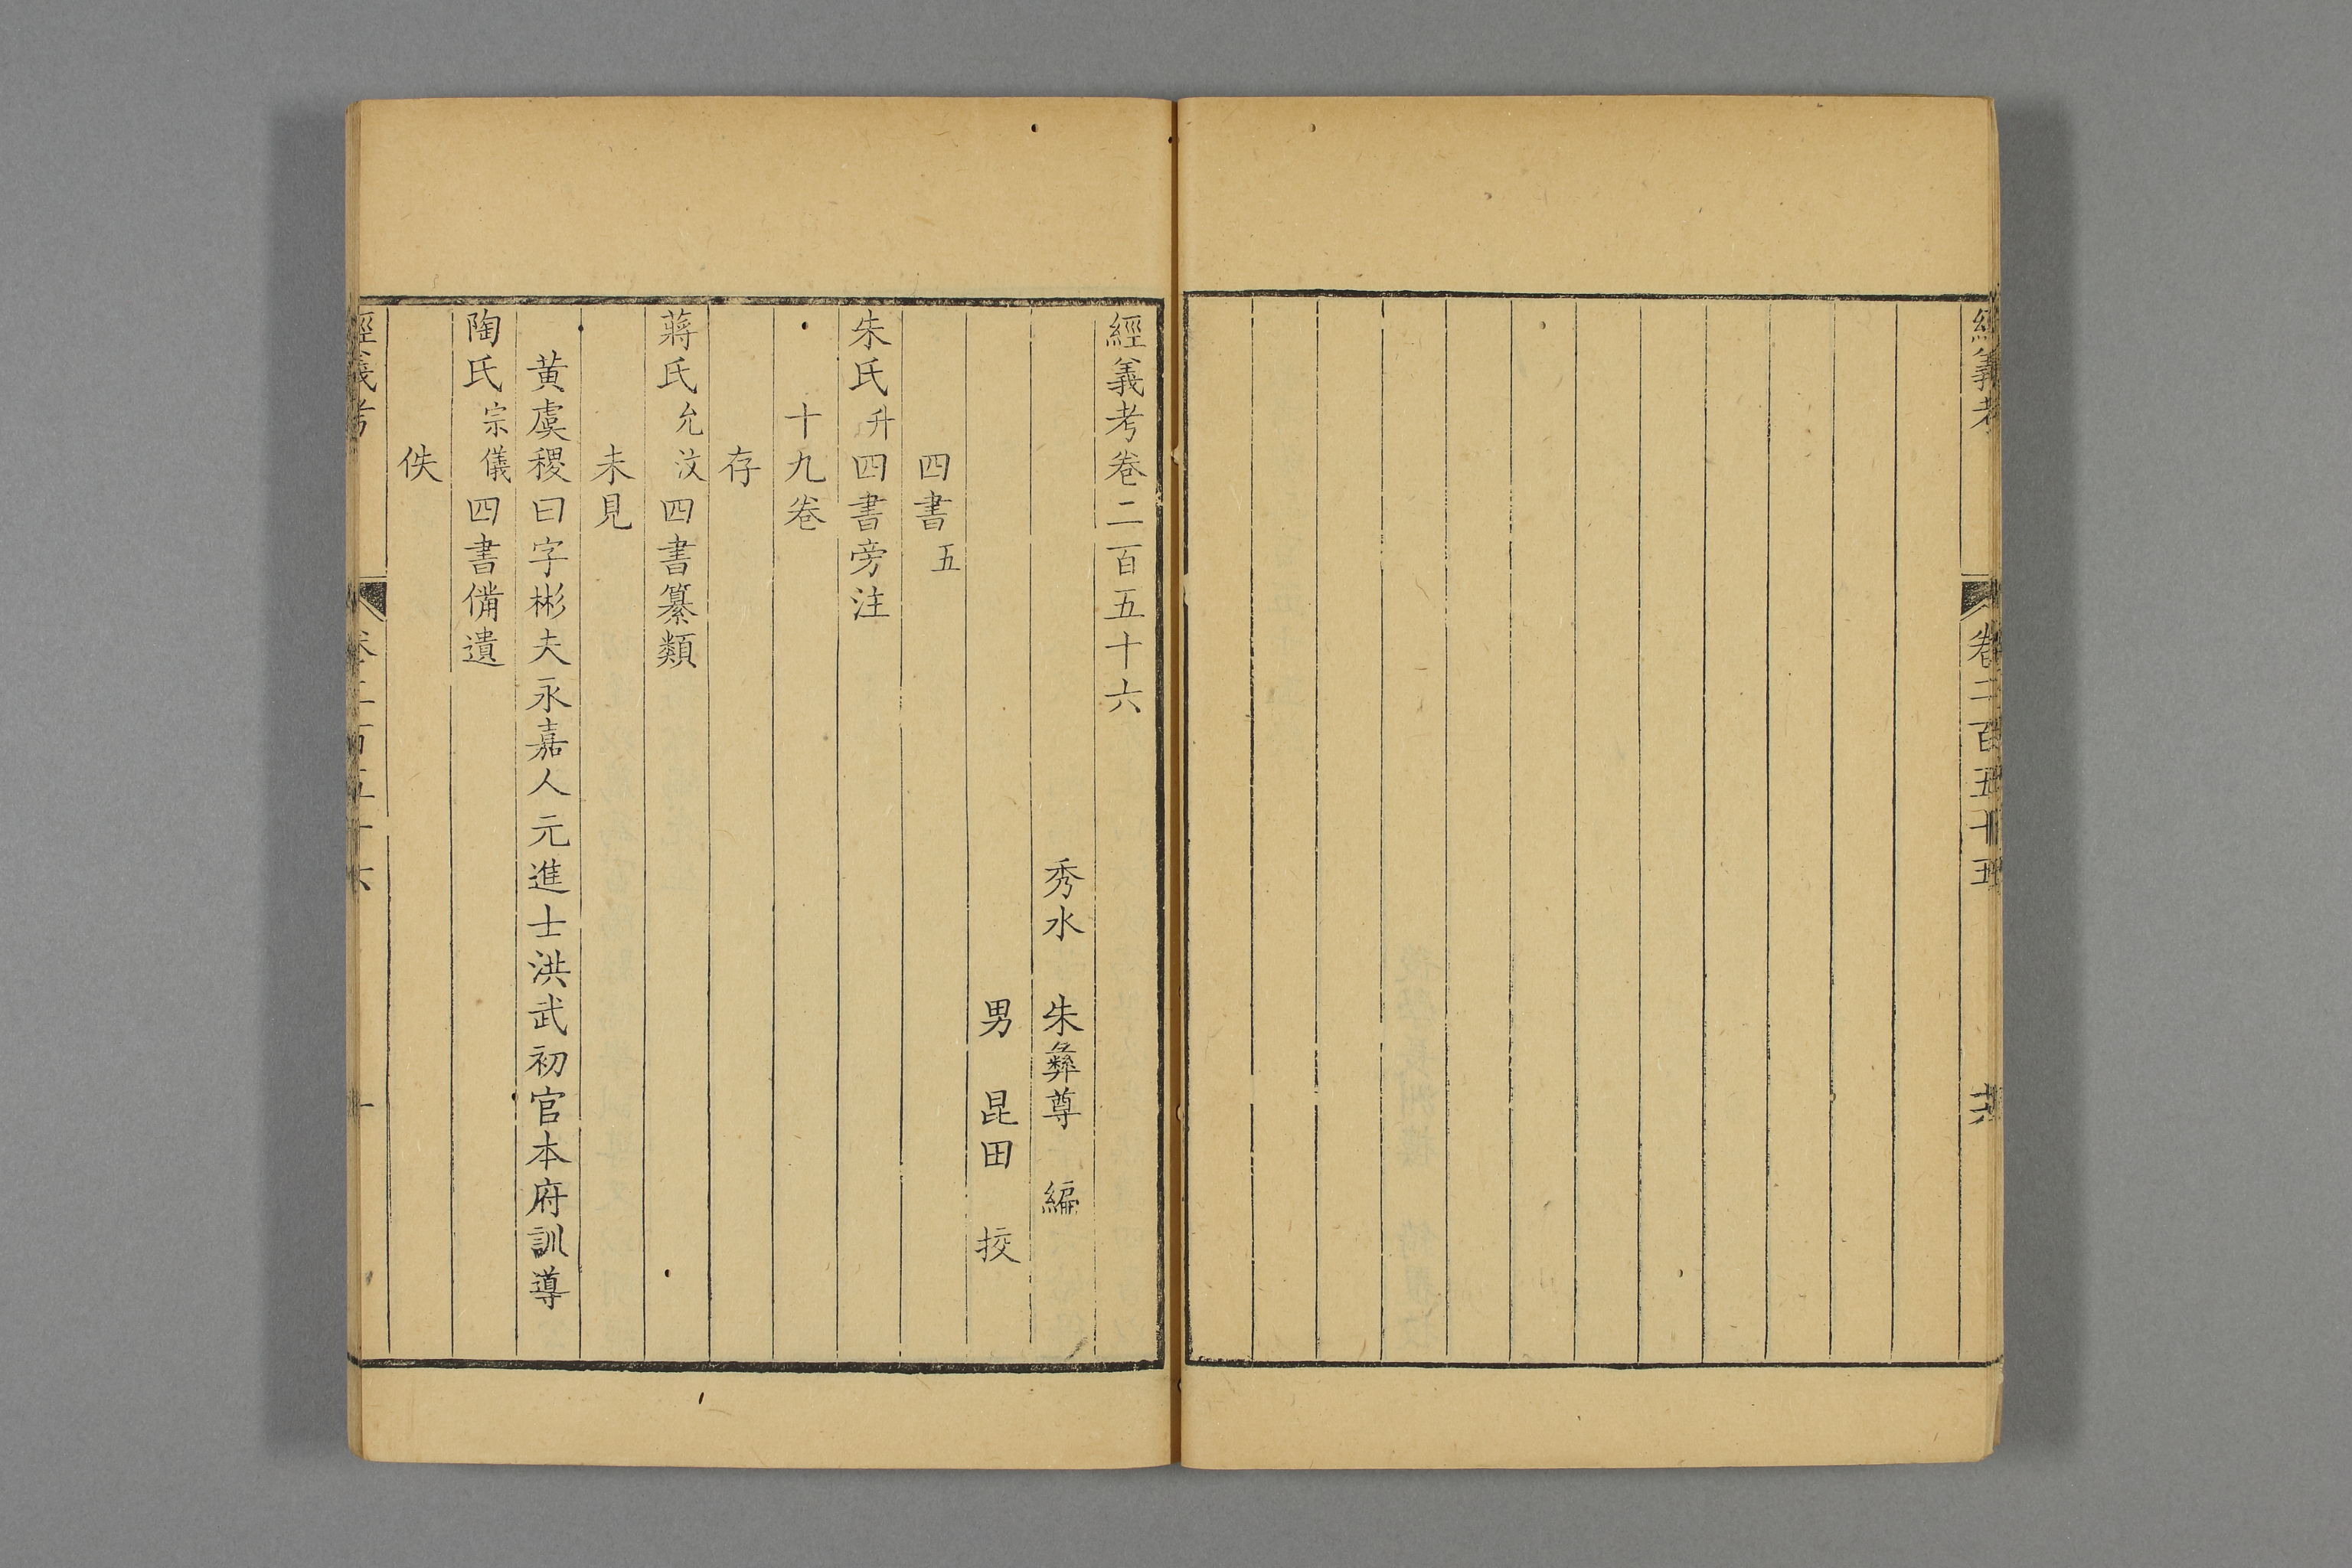 經義考
卷二百五十五
經義考卷二百五十六
秀水 朱彝尊 編
男 昆田 挍
四書五
朱氏升四書旁注
十九卷
存
蔣氏允汶四書纂類
未見
黃虞稷曰字彬夫永嘉人元進士洪武初官本府訓導
陶氏宗儀四書備遺
佚
經義考
卷二百五十六
一